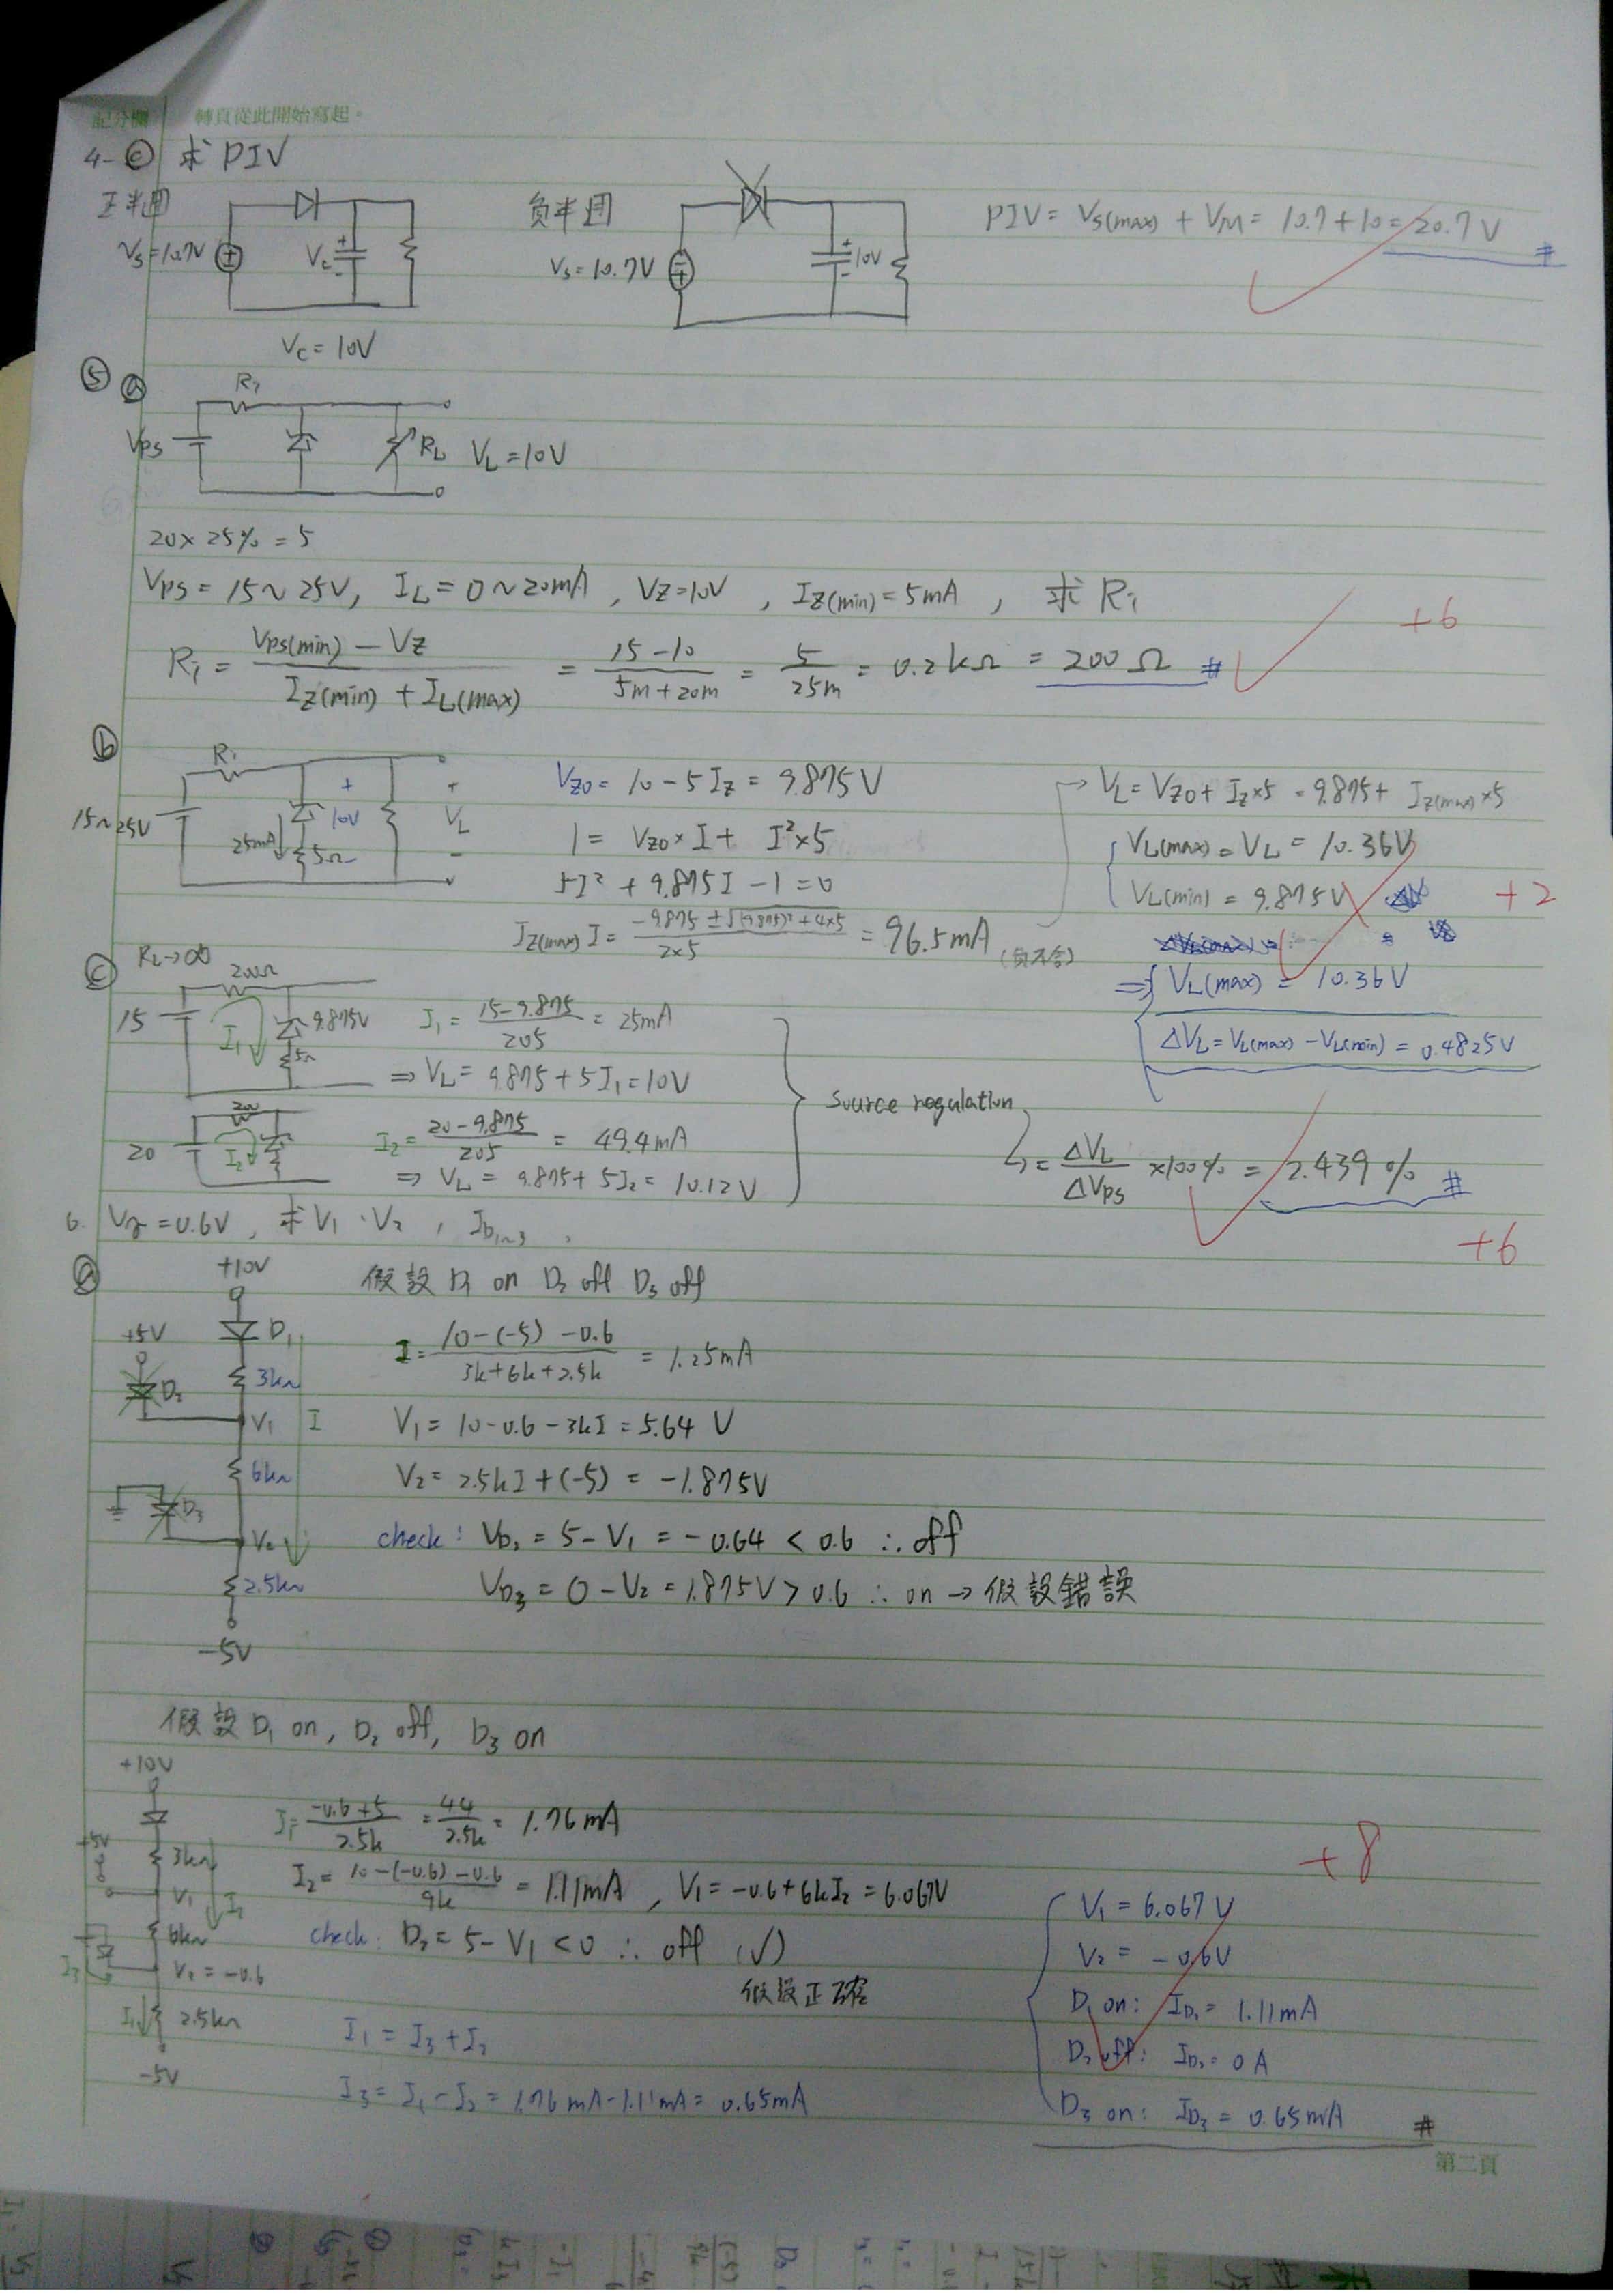 記分欄 轉頁從此開始寫起。
4-ⓒ 求 PIV
正半週
Vs=10.7V
Vc
+
-
Vc = 10V
負半週
Vs=10.7V
+
10V
-
PIV = Vs(max) + VM = 10.7+10 = 20.7 V #
⑤ ⓐ
Ri
Vps
RL VL=10V
20×25% = 5
Vps = 15~25V, IL = 0~20mA, VZ=10V, IZ(min) = 5mA, 求 Ri
Ri = Vps(min) - VZ / IZ(min) + IL(max) = 15-10 / 5m+20m = 5 / 25m = 0.2kΩ = 200Ω #
+6
ⓑ
Ri
15~25V
25mA
+
10V
5Ω
+
VL
-
VZ0 = 10-5IZ = 9.875V
1 = VZ0×I + I²×5
5I² + 9.875I - 1 = 0
IZ(max) I = -9.875 ± √(9.875)²+4×5 / 2×5 = 96.5mA (負不合)
→ VL = VZ0 + IZ×5 = 9.875 + IZ(max)×5
VL(max) = VL = 10.36V
VL(min) = 9.875V
+2
⇒ VL(max) = 10.36V
ΔVL = VL(max) - VL(min) = 0.4825V
ⓒ RL→∞
200Ω
15
I1
9.875V
5Ω
I1 = 15-9.875 / 205 = 25mA
⇒ VL = 9.875+5I1 = 10V
200
20
I2
I2 = 20-9.875 / 205 = 49.4mA
⇒ VL = 9.875+5I2 = 10.12V
Source regulation
= ΔVL / ΔVps ×100% = 2.439% #
+6
6. Vγ=0.6V, 求V1、V2, ID1~3,
ⓐ
+10V
D1
+5V
D2
3kΩ
V1 I
6kΩ
D3
V2
2.5kΩ
-5V
假設 D1 on D2 off D3 off
I = 10-(-5)-0.6 / 3k+6k+2.5k = 1.25mA
V1 = 10-0.6-3kI = 5.64 V
V2 = 2.5kI+(-5) = -1.875V
check: VD2 = 5-V1 = -0.64 < 0.6 ∴ off
VD3 = 0-V2 = 1.875V > 0.6 ∴ on → 假設錯誤
假設 D1 on, D2 off, D3 on
+10V
+5V
3kΩ
V1
I2
6kΩ
I3
V2 = -0.6
I1
2.5kΩ
-5V
I1 = -0.6+5 / 2.5k = 4.4 / 2.5k = 1.76mA
I2 = 10-(-0.6)-0.6 / 9k = 1.11mA, V1 = -0.6+6kI2 = 6.067V
check: D2 = 5-V1 < 0 ∴ off (√)
假設正確
I1 = I3 + I2
I3 = I1 - I2 = 1.76mA-1.11mA = 0.65mA
+8
V1 = 6.067V
V2 = -0.6V
D1 on: ID1 = 1.11mA
D2 off: ID2 = 0A
D3 on: ID3 = 0.65mA #
第二頁